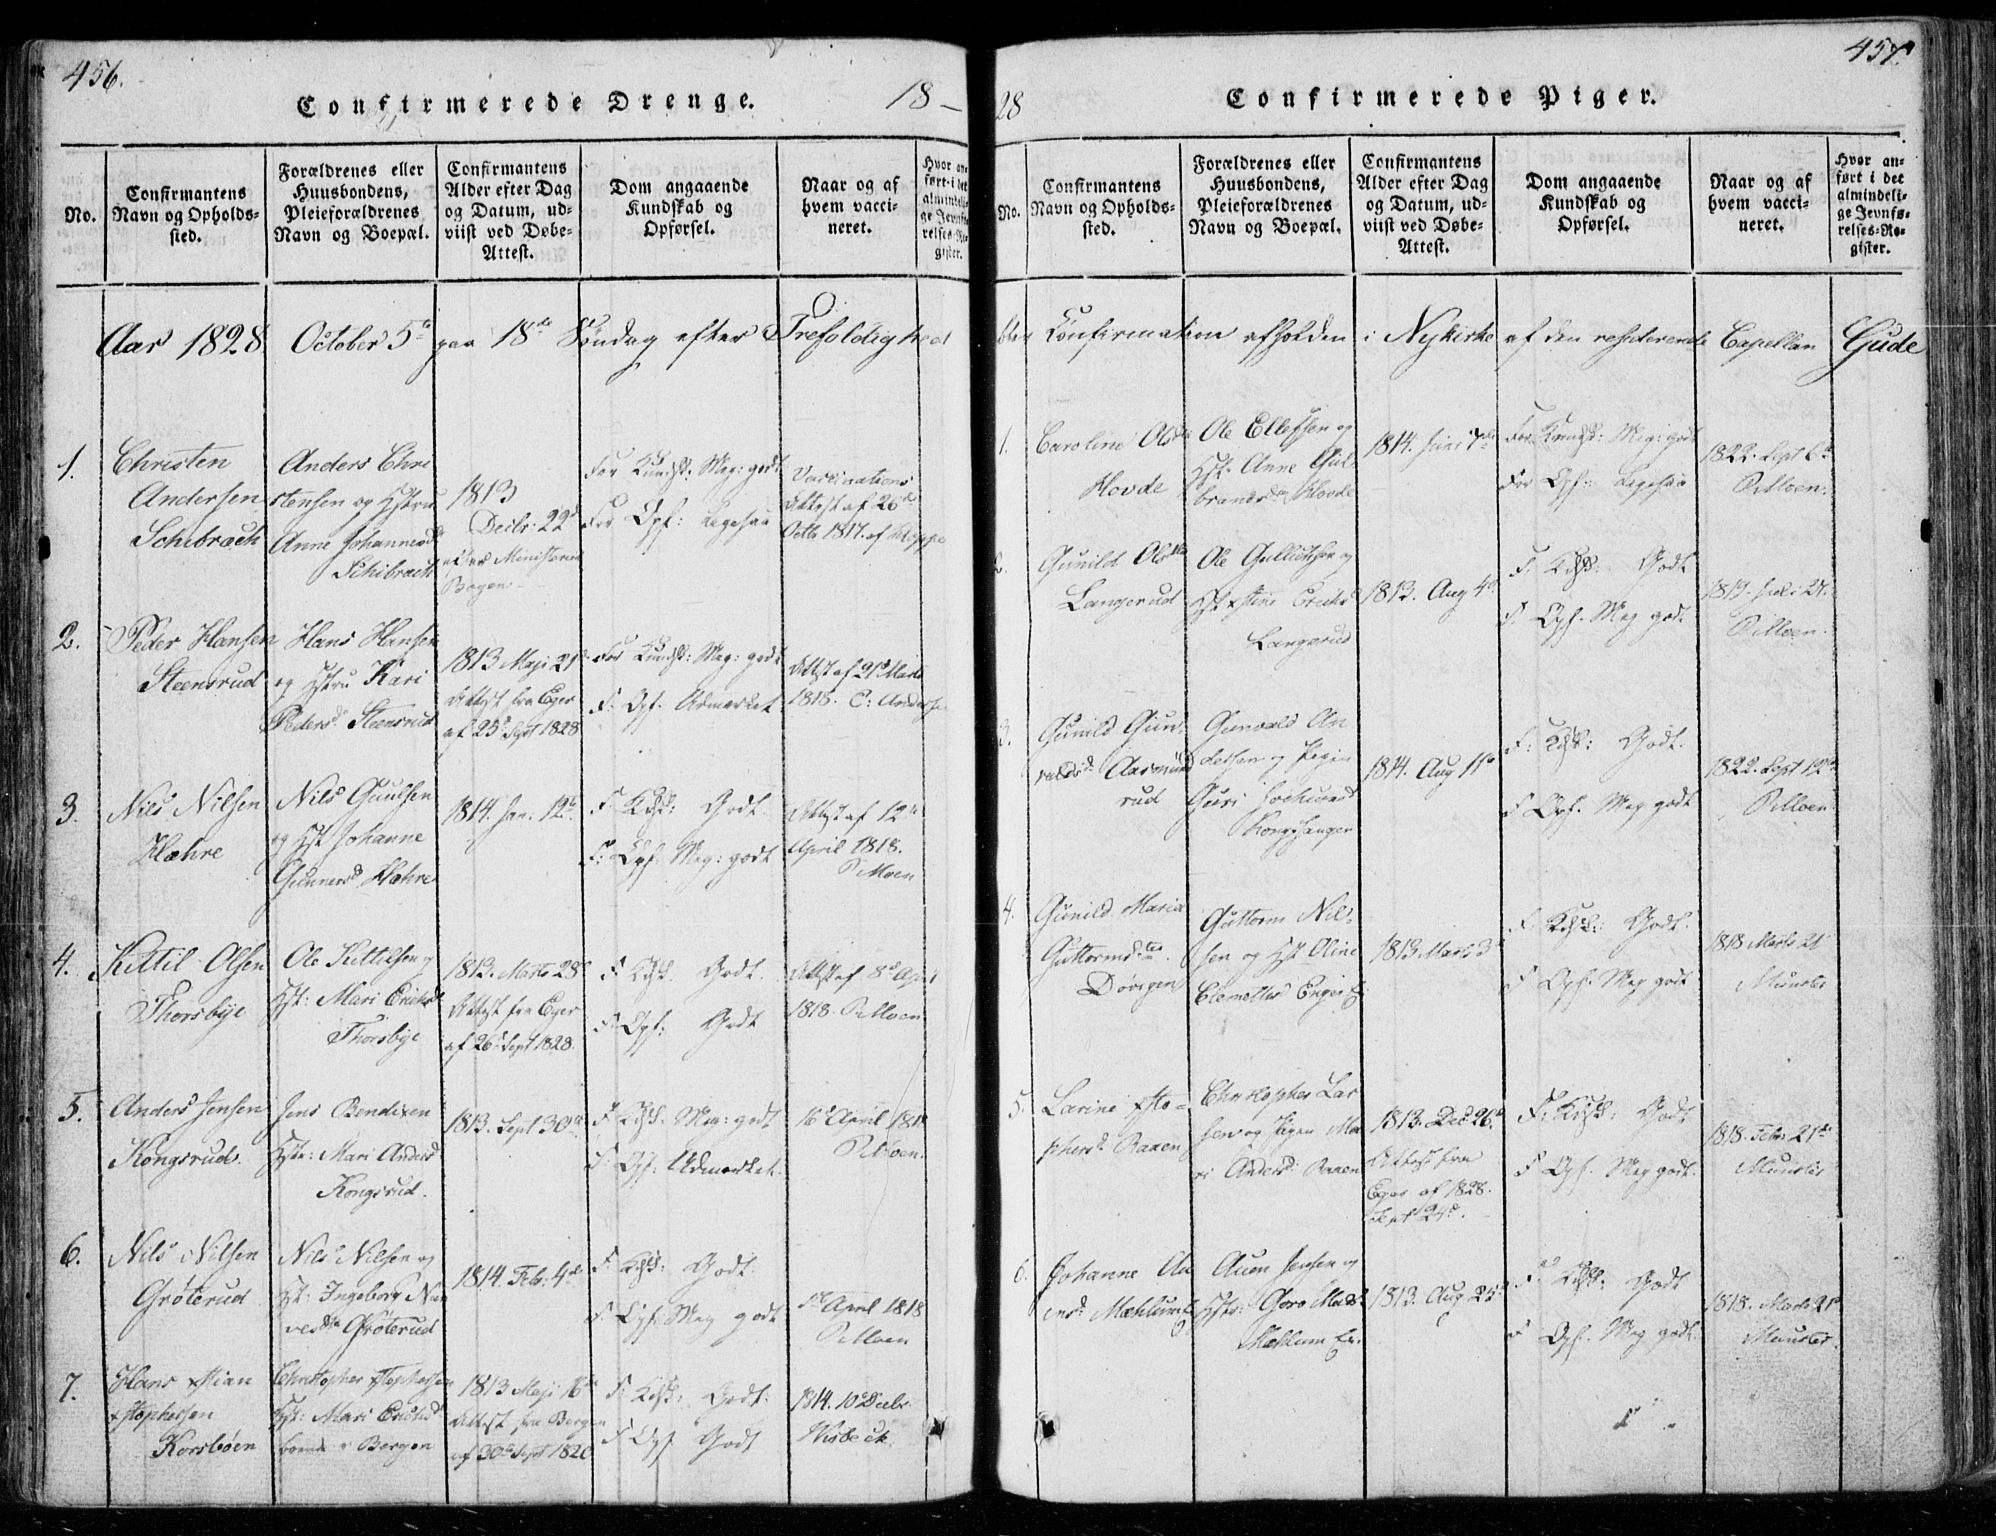 456.
Confirmerede Drenge.
18—
No.
Confirmantens
Navn og Opholds-
sted.
Forældrenes eller
Huusbondens,
Pleieforældrenes
Navn og Boepæl.
Confirmantens
Alder efter Dag
og Datum, ud-
viist ved Døbe-
Attest.
Dom angaaende
Kundskab og
Opførsel.
Naar og af
hvem vacci-
neret.
Hvor an-
ført i det
almindeli-
ge Jevnfø-
relses-Re-
gister.
Aar 1828 October 5te paa 18de Søndag efter Trefoldighed
1.
Christen
Andersen
Schibrach
Anders Chri
stensen og Hstru
Anne Johannesd
Schibrach
1813
Decbr: 22d
Bogen
For Kundsk: Meg: godt
For Opf: Ligesaa
Vaccinations
Attest af 26d
Octb 1817. af Kloppe
2.
Peder Hansen
Steensrud
Hans Hansen
og Hstru Kari
Pedersd Steensrud
1813 Maji 21d
Attest fra Eger
af 25d Sept 1828
For Kundsk: Meg: godt
F: Opf. Udmærket
Attst af 21d Marts
1818. C: Andersen
3.
Nils Nilsen
Hæhre
Nils Guulsen
og Hst Johanne
Gunnersd Hæhre
1814. Jan: 12te
F: Kdsk: Godt
F: Opf. Meg: godt
Attst af 12te
April 1818.
P. Moen
4.
Kittil Olsen
Thorsbye
Ole Kittilsen og
Hst: Mari Ericksd
Thorsbye
1813. Marts 28d
Attest fra Eger
af 26d Sept 1828.
F: Kdsk Godt
F: Opf: Godt
Attst af 8d April
1818. P. Moen
5.
Anders Jensen
Kongsrud.
Jens Bendixen
Hstr: Mari Andersd
Kongsrud.
1813. Sept 30te
F: Kdsk. Meg: godt
F: Opf: Udmærket.
16d April 1818
P. Moen.
6.
Nils Nilsen
Grøterud
Nils Nilsen og
Hst: Ingeborg
Grøterud
1814. Feb: 4de
F: Kdsk: Godt.
F: Opf: Meg godt
April 1818
P. Moen
7.
Hans Xtian
Xstophersen
Korsbøen
Christopher Xstophersen
Hst: Mari
Bergen
1813 Maji 16de
Attest fra Bergen
af 30te Sept 1828
F: Kdsk: Godt.
F Opf Godt
1814. 10d Decbr.
Wisbeck.
457.
28
Confirmerede Piger.
No.
Confirmantens
Navn og Opholds-
sted.
Forældrenes eller
Huusbondens,
Pleieforældrenes
Navn og Boepæl.
Confirmantens
Alder efter Dag
og Datum, ud-
viist ved Døbe-
Attest.
Dom angaaende
Kundskab og
Opførsel.
Naar og af
hvem vacci-
neret.
Hvor an-
ført i det
almindeli-
ge Jevnfø-
relses-Re-
gister.
blev Confirmation afholden i Nykirke af den residerende Capellan Gude
1.
Caroline Olsd
Hovde
Ole Ellefsen og
Hst: Anne Gul
brandsd Hovde
1814. Juni 7de
For Kundsk: Meg: godt
For Opf: Ligesaa
1822. Sept 6te
P. Moen.
2.
Gunild Olsd
Langerud
Ole Gulliksen og
Hst Xstine Ericksd
Langerud
1813. Aug 4d
F. Kdsk: Godt
F. Opf. Meg godt
P. Moen.
3.
Gunild Gun-
valdsd Aasmund
rud
Gunvald An
dersen og Pigen
Guri
Kongshaugen
1814. Aug 11te
F: Kdsk: Godt.
F Opf. Meg godt
1822. Sept 12te
P. Moen
4.
Gunild Maria
Guttormd
Døvigen
Guttorm Nil-
sen og Hst Oline
Clemetsd
1813 Marts 3
F. Kdsk: Godt.
F Opf. Meg godt
1818 Marts 21
Munster
5.
Larine Xsto-
phersd Raaen
Christopher Lar
sen og Pigen Ma
ri Andersd Raaen
1813. Dec 26d
Attest fra
Eger af 1828.
Sept 24d.
F: Kdsk: Godt
F Opf. Meg godt.
1818. Febr: 21de
Munster
6.
Johanne Au
ensd Mæhlum
Auen Jensen og
Hstr: Goro Madsd
Mæhlum
1813. Aug 25d
F. Kdsk: Godt
F Opf. Meg godt.
1818. Marts 21d
Munster.